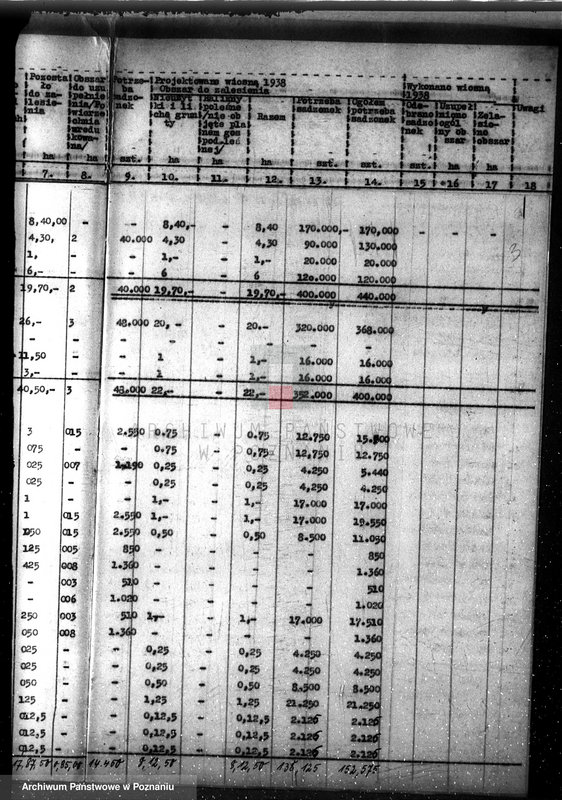 Pozosta Obszar Potrze- Projektowano wiosną 1938 Wykonano wiosną
ło do uzu ba Obszar do zalesienia 1938 Uwagi
do za- pełnie sadzo- Razem Potrzeba Ogółem Ode- Uzupeł Zale-
lesie- nia/Po nek sadzonek potrzeba brano niono sio-
nia wierzc sadzonek sadzo- ogól no
nek ny ob obszar
szar
ha ha szt. ha ha ha szt. szt. szt. ha ha
7. 8. 9. 10. 11. 12. 13. 14. 15 16 17 18
8,40,00 - - 8,40,- - 8,40 170.000,- 170,000 - - -
4,30, 2 40.000 4,30 - 4,30 90.000 130.000
1, - - 1,- - 1,- 20.000 20.000
6,- - - 6 - 6 120.000 120.000
19,70,- 2 40.000 19,70,- - 19,70,- 400.000 440.000
3
26,- 3 48.000 20,- - 20.- 320.000 368.000
- - - - - - - -
11,50 - - 1 - 1,- 16.000 16.000
3,- - - 1 - 1,- 16.000 16.000
40,50,- 3 48.000 22,- - 22,- 352.000 400.000
ARCHIWUM PAŃSTWOWE
W POZNANIU
3 015 2.550 0.75 - 0.75 12.750 15.300
075 - - 0.75 - 0,75 12,750 12.750
025 007 1.190 0,25 - 0.25 4.250 5.440
025 - - 0,25 - 0,25 4,250 4.250
1 - - 1,- - 1,- 17.000 17.000
1 015 2.550 1,- - 1,- 17.000 19.550
050 015 2.550 0,50 - 0,50 8.500 11.050
125 005 850 - - - - 850
425 008 1.360 - - - - 1.360
- 003 510 - - - - 510
- 006 1.020 - - - - 1.020
250 003 510 1,- - 1,- 17.000 17.510
050 008 1.360 - - - - 1.360
025 - - 0,25 - 0,25 4.250 4.250
025 - - 0,25 - 0,25 4.250 4.250
050 - - 0,50 - 0,50 8.500 8.500
125 - - 1,25 - 1,25 21.250 21.250
012,5 - - 0,12,5 - 0,12,5 2.126 2.126
012,5 - - 0,12,5 - 0,12,5 2.126 2.126
012,5 - - 0,12,5 - 0,12,5 2.126 2.126
14.400 8,12,50 8,12,50 138,125 152,575
Archiwum Państwowe w Poznaniu